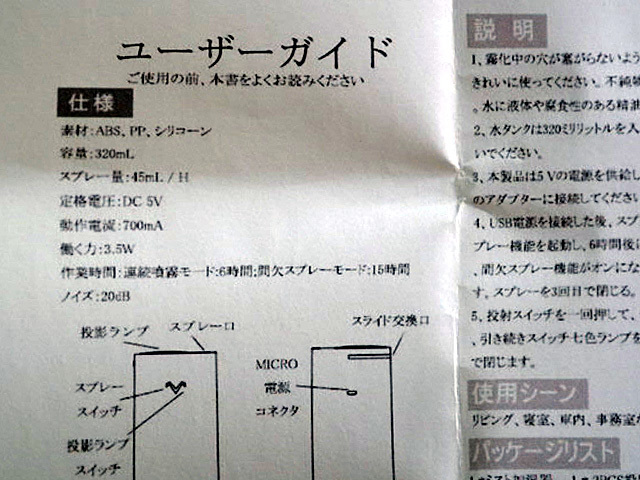 ユーザーガイド
ご使用の前、本書をよくお読みください
仕様
素材:ABS、PP、シリコーン
容量:320mL
スプレー量:45mL / H
定格電圧:DC 5V
動作電流:700mA
働く力:3.5W
作業時間:連続噴霧モード:6時間;間欠スプレーモード:15時間
ノイズ:20dB
投影ランプ
スプレー口
スプレー
スイッチ
投影ランプ
スイッチ
スライド交換口
MICRO
電源
コネクタ
説 明
1、霧化中の穴が塞がらないよう
きれいに使ってください。不純
。水に液体や腐食性のある精油
2、水タンクは320ミリリットルを入
いでください。
3、本製品は5 Vの電源を供給し
のアダプターに接続してください
4、USB電源を接続した後、スプ
プレー機能を起動し、6時間後に
、間欠スプレー機能がオンにな
す。スプレーを3回目で閉じる。
5、投射スイッチを一回押して、
、引き続きスイッチ七色ランプを
で閉じます。
使用シーン
リビング、寝室、車内、事務室
パッケージリスト